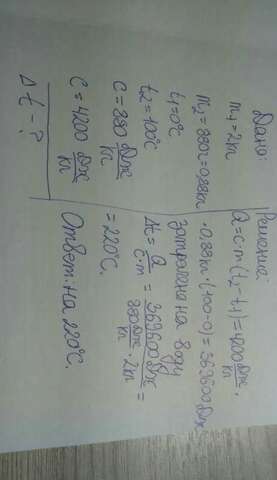 Дано:
m₁=2кг
m₂=880г=0,88кг
t₁=0°C
t₂=100°C
C=880 Дж/кг
C=4200 Дж/кг
Δt-?
Решение:
Q=c·m(t₂-t₁)=4200 Дж/кг·
·0,88кг·(100-0)=369600 Дж
затрачено на воду
Δt= Q/c·m = 369600 Дж/880 Дж/кг·2кг =
=220°C.
Ответ: на 220°C.